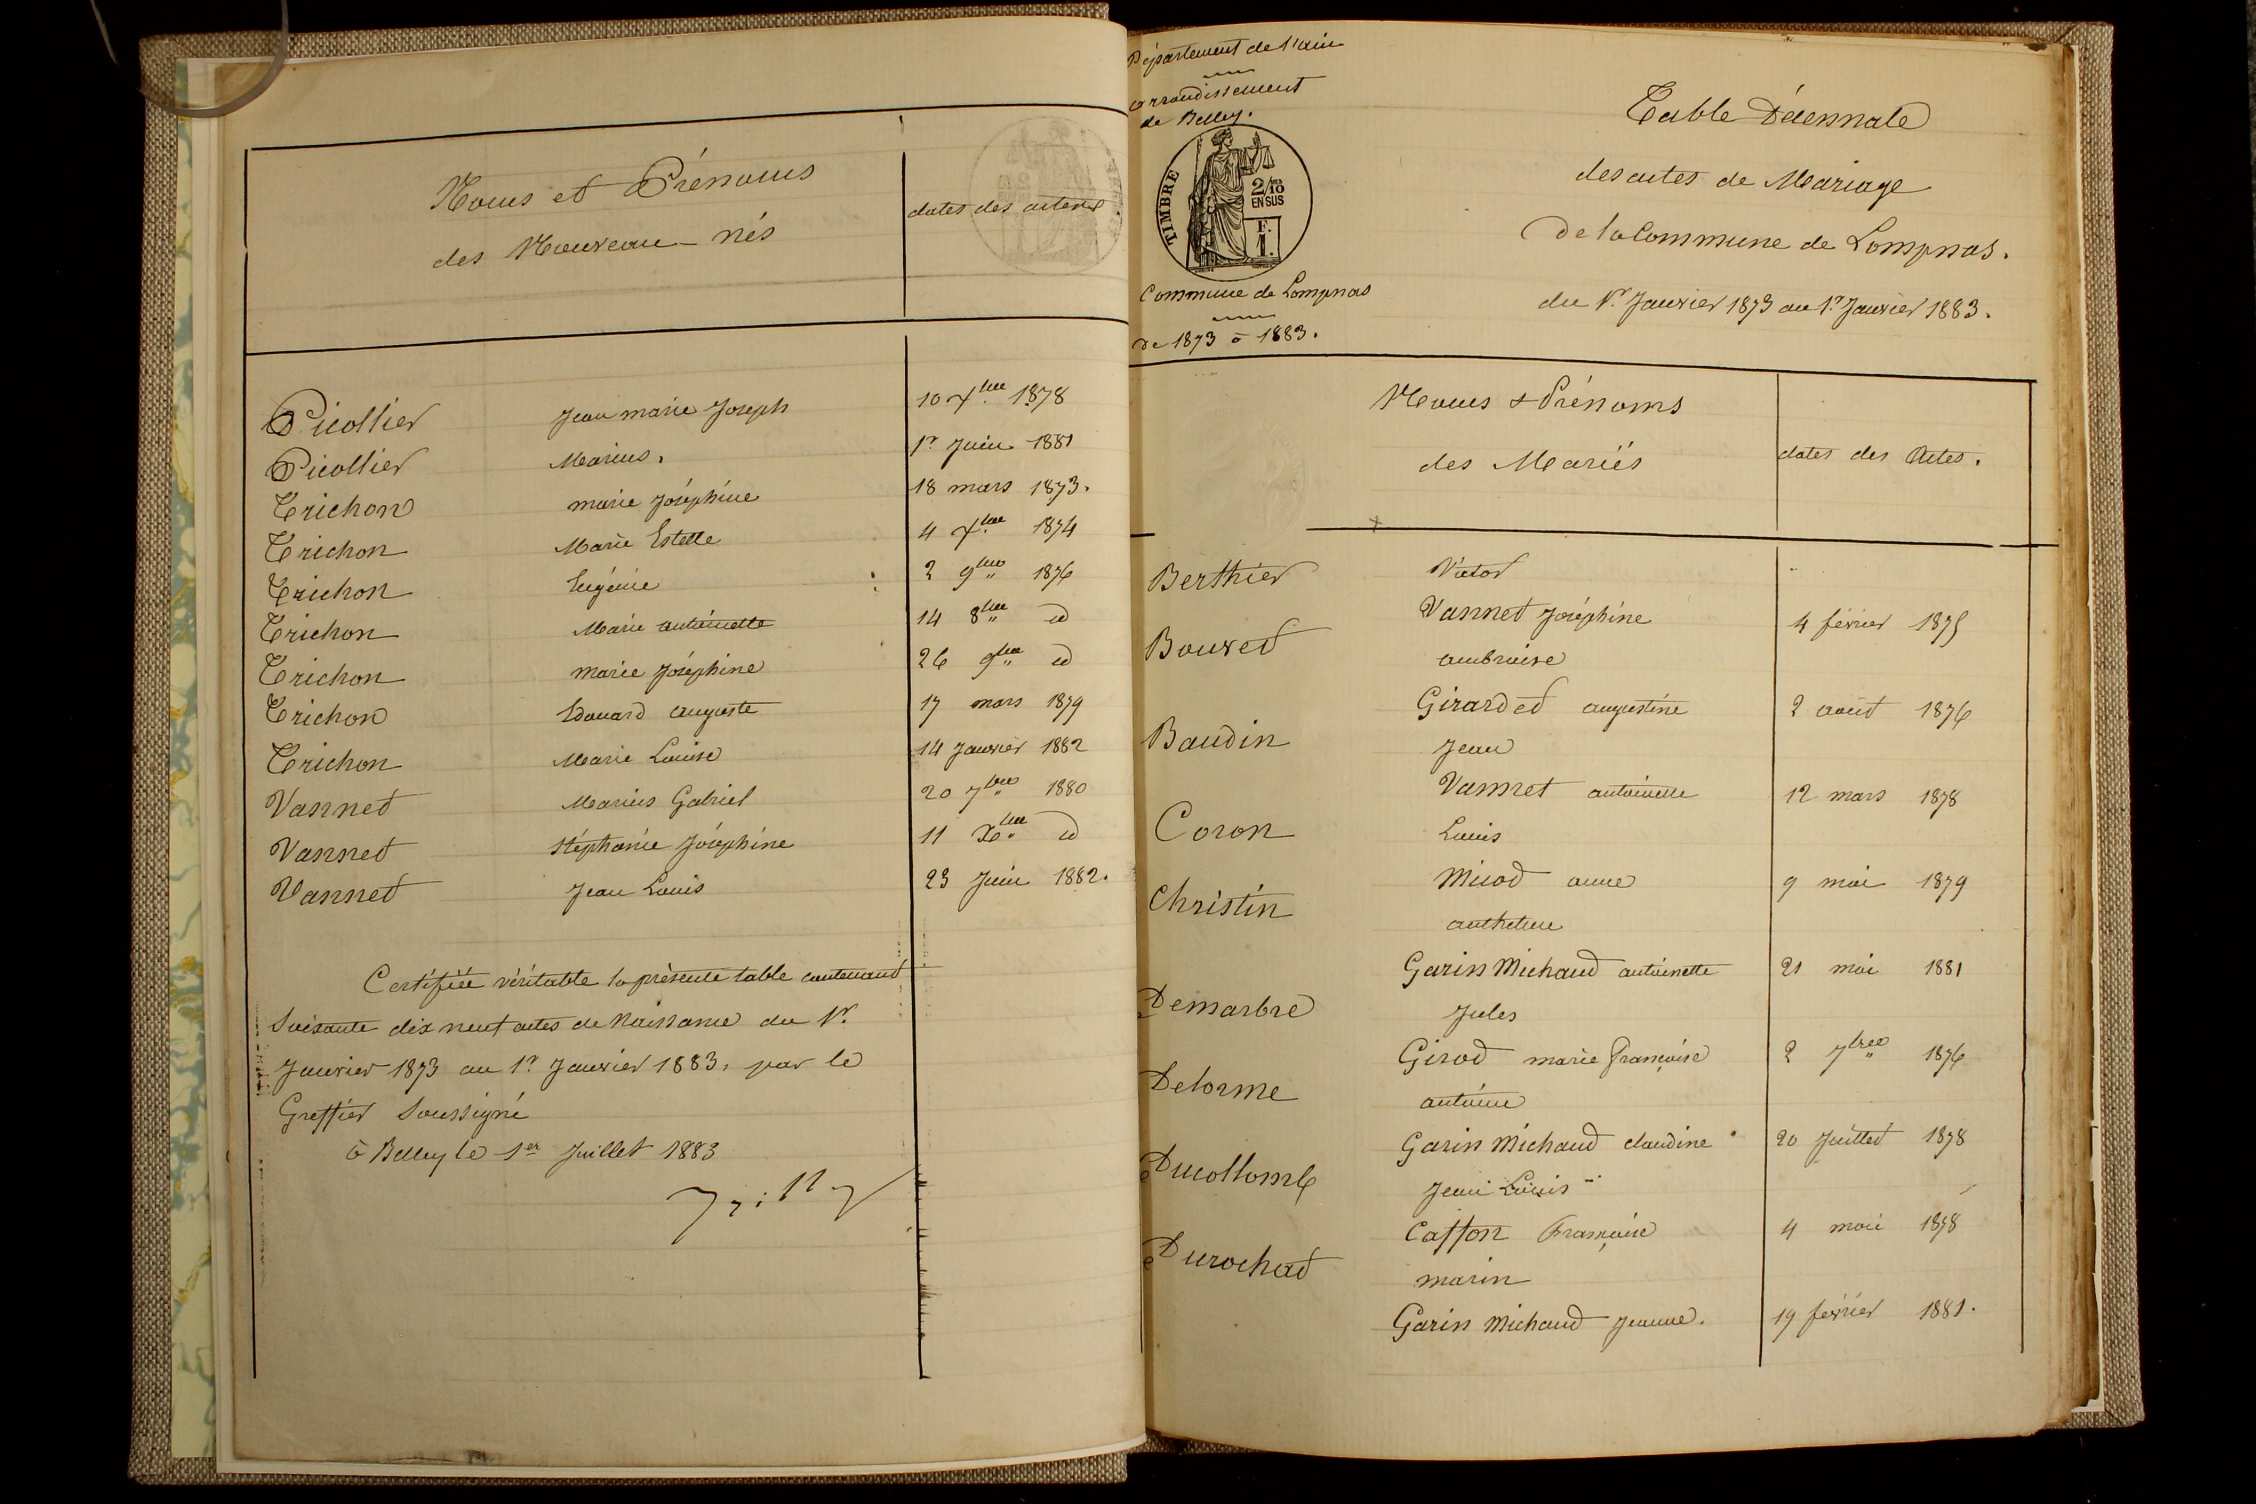 Noms et Prénoms
des Nouveau-nés
dates des actes
Picollier Jean marie Joseph 10 Xbre 1878
Picollier Marius. 1r Juin 1881
Trichon marie Joséphine 18 mars 1873.
Trichon Marie Estelle 4 Xbre 1874
Trichon Eugénie 2 9bre 1876
Trichon Marie antoinette 14 8bre id
Trichon marie Joséphine 26 9bre id
Trichon Edouard auguste 17 mars 1879
Trichon Marie Louise 14 Janvier 1882
Vannet Marius Gabriel 20 7bre 1880
Vannet Stéphanie Joséphine 11 Xbre id
Vannet Jean Louis 23 Juin 1882.
Certifiée véritable la présente table contenant
Soixante dix neuf actes de Naissance du 1r
Janvier 1873 au 1r Janvier 1883, par le
Greffier Soussigné
à Belley le 1er Juillet 1883
Département de l'ain
arrondissement
de Belley.
TIMBRE
2/10
EN SUS
F.
1.
Commune de Lompnas
de 1873 à 1883.
Table Décennale
des actes de Mariage
De la Commune de Lompnas.
du 1r Janvier 1873 au 1r Janvier 1883.
Noms & Prénoms
des Mariés
dates des Actes.
Berthier Victor
Vannet Joséphine 4 février 1875
Bouvet ambroise
Girardet augustine 2 août 1876
Baudin Jean
Vannet antoinette 12 mars 1878
Coron Louis
Micod anne 9 mai 1879
Christin anthelme
Garin Michaud antoinette 21 mai 1881
Demarbre Jules
Girod marie françoise 2 7bre 1876
Delorme antoine
Garin Michaud claudine 20 Juillet 1878
Ducollomb Jean Louis
Caffon Françoise 4 mai 1878
Durochat marin
Garin Michaud Jeanne. 19 février 1881.